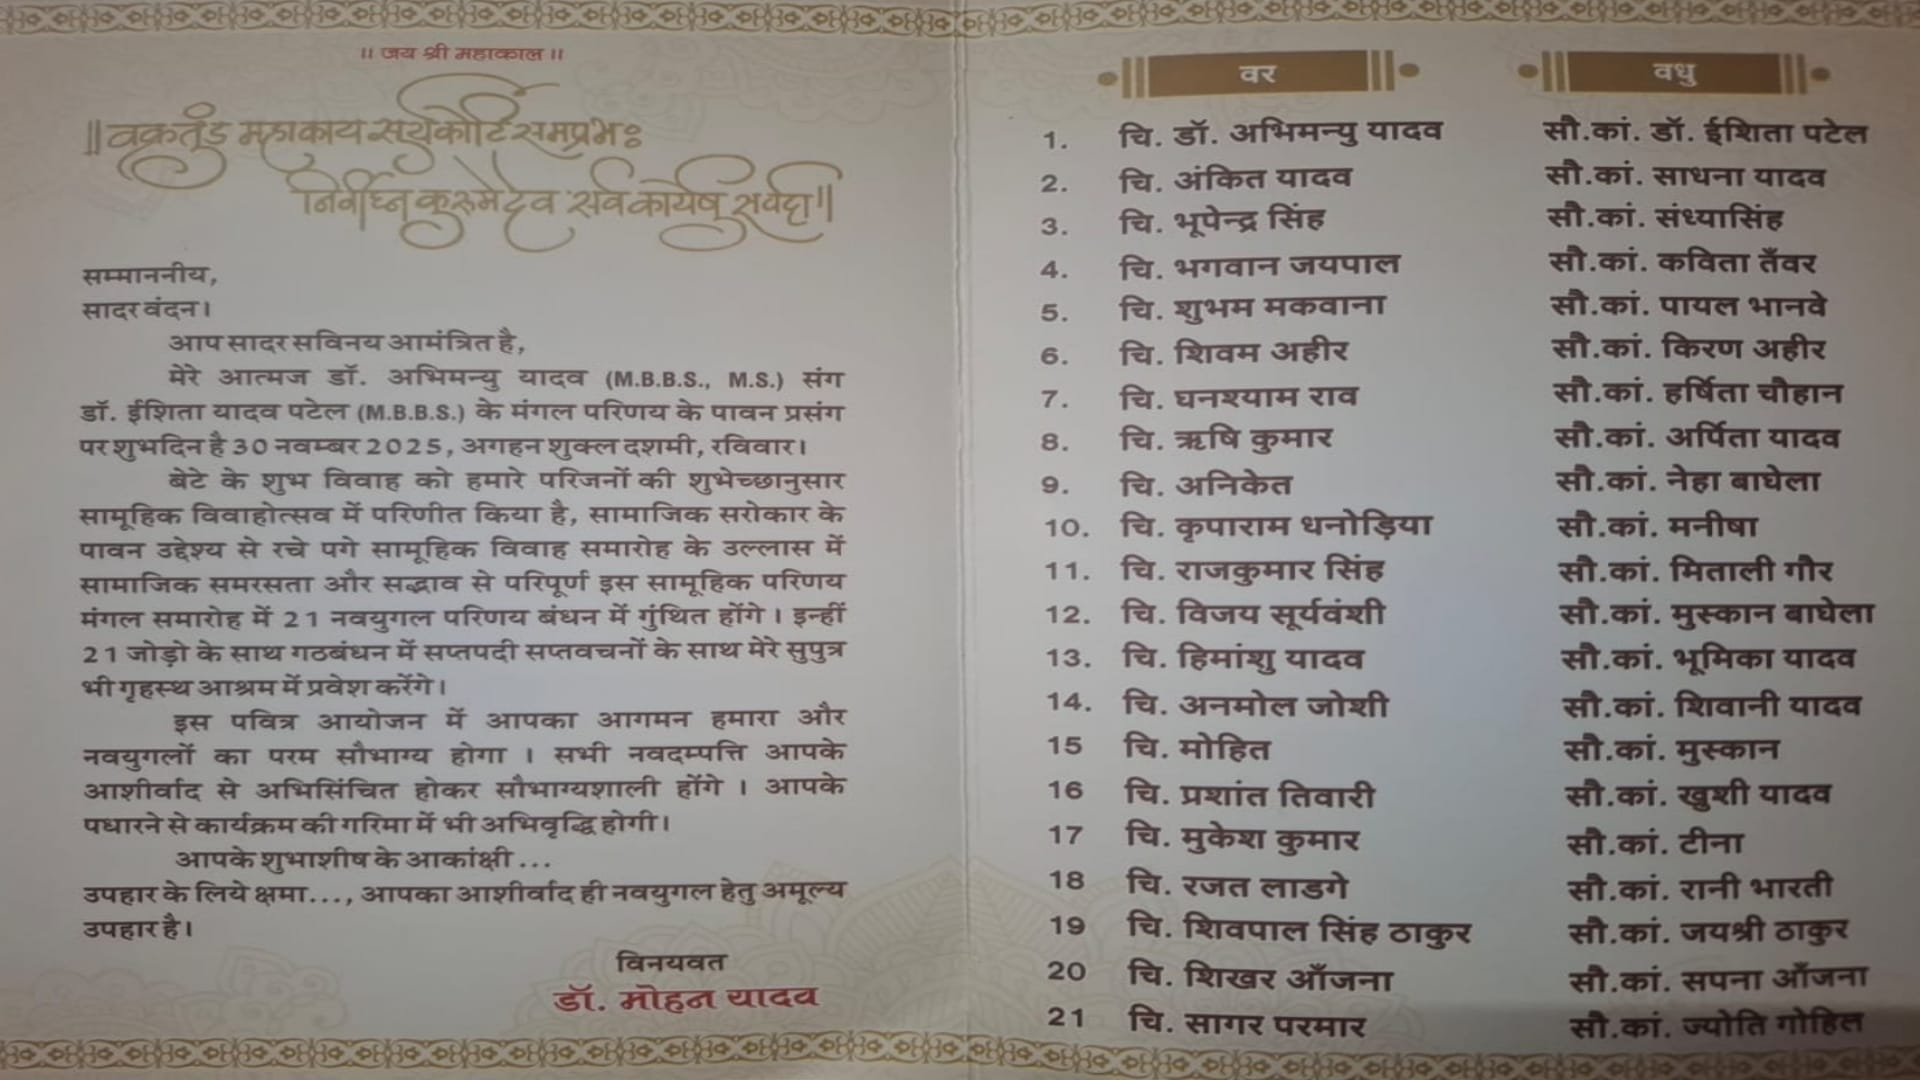 ॥ जय श्री महाकाल ॥
॥ वक्रतुंड महाकाय सूर्यकोटि समप्रभः
निर्विघ्नं कुरूमेदेव सर्व कार्येषु सर्वदा ॥
सम्माननीय,
सादर वंदन।
आप सादर सविनय आमंत्रित है,
मेरे आत्मज डॉ. अभिमन्यु यादव (M.B.B.S., M.S.) संग
डॉ. ईशिता यादव पटेल (M.B.B.S.) के मंगल परिणय के पावन प्रसंग
पर शुभदिन है 30 नवम्बर 2025, अगहन शुक्ल दशमी, रविवार।
बेटे के शुभ विवाह को हमारे परिजनों की शुभेच्छानुसार
सामूहिक विवाहोत्सव में परिणीत किया है, सामाजिक सरोकार के
पावन उद्देश्य से रचे पगे सामूहिक विवाह समारोह के उल्लास में
सामाजिक समरसता और सद्भाव से परिपूर्ण इस सामूहिक परिणय
मंगल समारोह में 21 नवयुगल परिणय बंधन में गुंथित होंगे । इन्हीं
21 जोड़ो के साथ गठबंधन में सप्तपदी सप्तवचनों के साथ मेरे सुपुत्र
भी गृहस्थ आश्रम में प्रवेश करेंगे।
इस पवित्र आयोजन में आपका आगमन हमारा और
नवयुगलों का परम सौभाग्य होगा । सभी नवदम्पत्ति आपके
आशीर्वाद से अभिसिंचित होकर सौभाग्यशाली होंगे । आपके
पधारने से कार्यक्रम की गरिमा में भी अभिवृद्धि होगी।
आपके शुभाशीष के आकांक्षी ...
उपहार के लिये क्षमा..., आपका आशीर्वाद ही नवयुगल हेतु अमूल्य
उपहार है।
विनयवत
डॉ. मोहन यादव
वर वधु
1. चि. डॉ. अभिमन्यु यादव सौ.कां. डॉ. ईशिता पटेल
2. चि. अंकित यादव सौ.कां. साधना यादव
3. चि. भूपेन्द्र सिंह सौ.कां. संध्यासिंह
4. चि. भगवान जयपाल सौ.कां. कविता तँवर
5. चि. शुभम मकवाना सौ.कां. पायल भानवे
6. चि. शिवम अहीर सौ.कां. किरण अहीर
7. चि. घनश्याम राव सौ.कां. हर्षिता चौहान
8. चि. ऋषि कुमार सौ.कां. अर्पिता यादव
9. चि. अनिकेत सौ.कां. नेहा बाघेला
10. चि. कृपाराम धनोड़िया सौ.कां. मनीषा
11. चि. राजकुमार सिंह सौ.कां. मिताली गौर
12. चि. विजय सूर्यवंशी सौ.कां. मुस्कान बाघेला
13. चि. हिमांशु यादव सौ.कां. भूमिका यादव
14. चि. अनमोल जोशी सौ.कां. शिवानी यादव
15 चि. मोहित सौ.कां. मुस्कान
16 चि. प्रशांत तिवारी सौ.कां. खुशी यादव
17 चि. मुकेश कुमार सौ.कां. टीना
18 चि. रजत लाडगे सौ.कां. रानी भारती
19 चि. शिवपाल सिंह ठाकुर सौ.कां. जयश्री ठाकुर
20 चि. शिखर आँजना सौ.कां. सपना आँजना
21 चि. सागर परमार सौ.कां. ज्योति गोहित